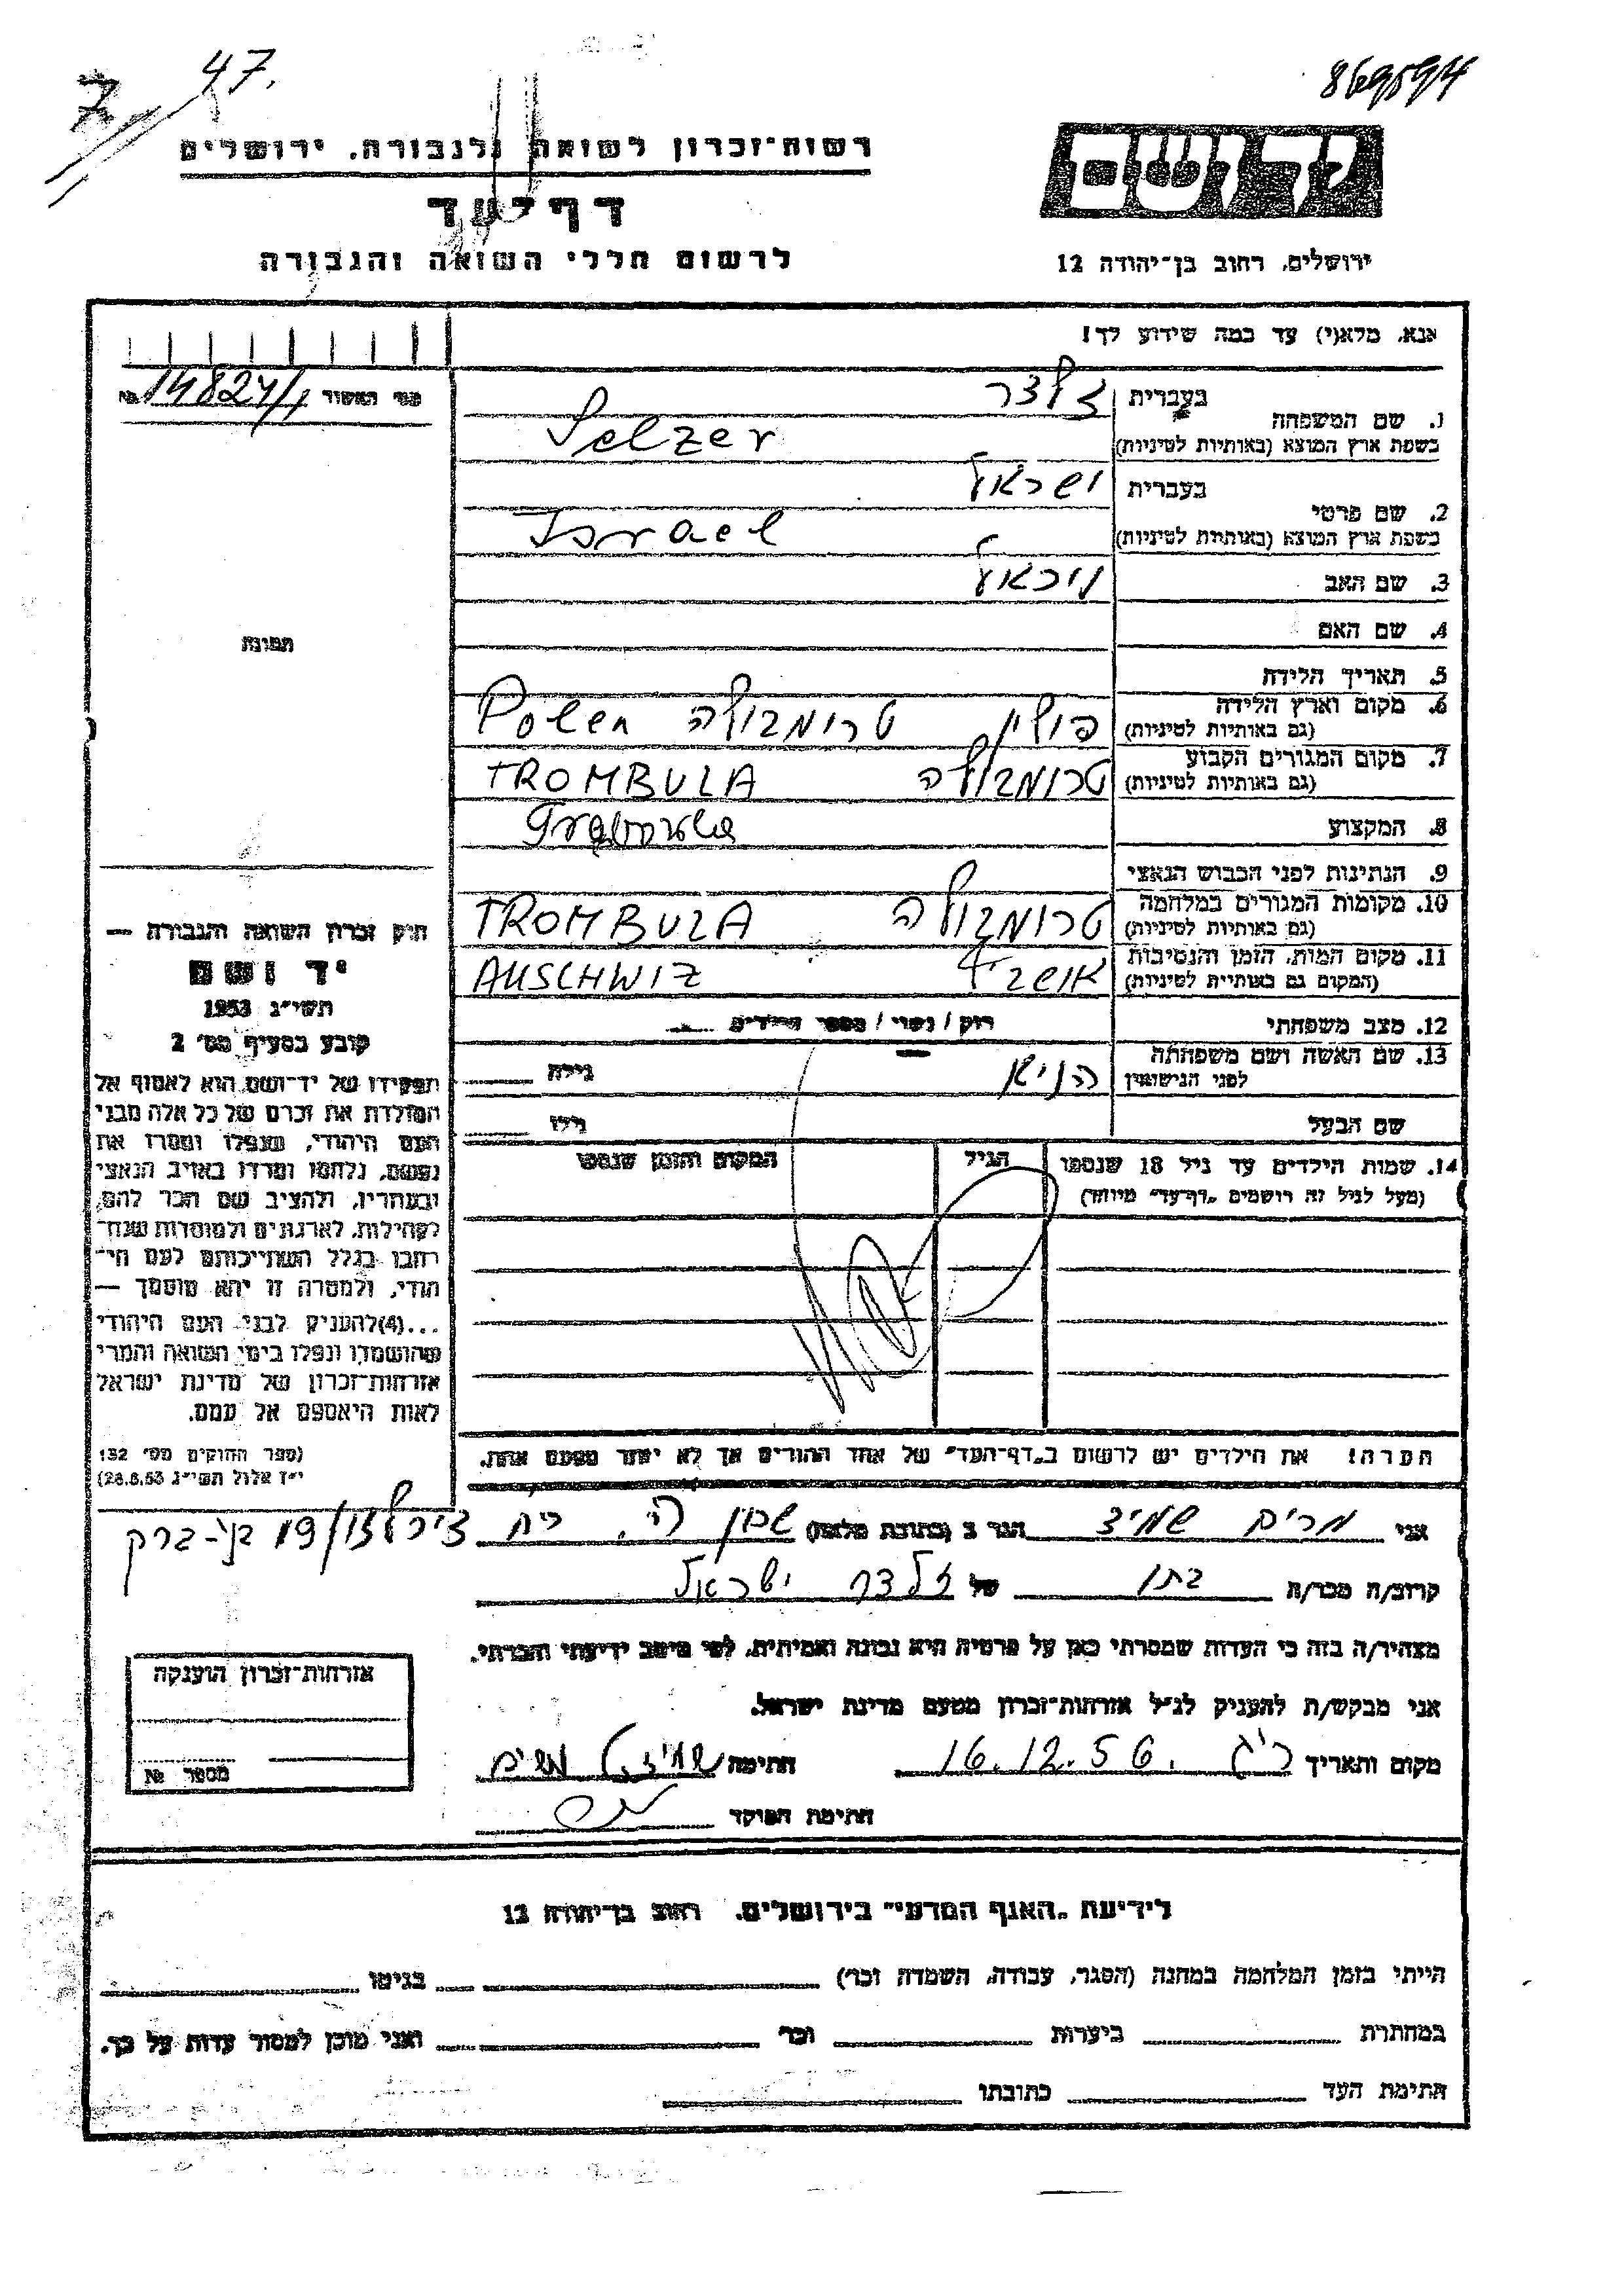 47.
869594
רשות־זכרון לשואה ולגבורה, ירושלים
יד ושם
דף־עד
לרשום חללי השואה והגבורה
ירושלים, רחוב בן־יהודה 12
אנא, מלא(י) עד כמה שידוע לך!
מס׳ האשור № 14824/1
1. שם המשפחה בעברית זלצר
בשפת ארץ המוצא (באותיות לטיניות) Selzer
2. שם פרטי בעברית ישראל
בשפת ארץ המוצא (באותיות לטיניות) Israel
3. שם האב מיכאל
4. שם האם
תמונה
5. תאריך הלידה
6. מקום וארץ הלידה (גם באותיות לטיניות) פולין טרומבולה Polen
7. מקום המגורים הקבוע (גם באותיות לטיניות) טרומבולה TROMBULA
8. המקצוע
9. הנתינות לפני הכבוש הנאצי
10. מקומות המגורים במלחמה (גם באותיות לטיניות) טרומבולה TROMBULA
11. מקום המות, הזמן והנסיבות (המקום גם באותיות לטיניות) AUSCHWIZ
12. מצב משפחתי רוק / נשוי / מספר הילדים
13. שם האשה ושם משפחתה לפני הנישואין הניא גילה
שם הבעל גילו
14. שמות הילדים עד גיל 18 שנספו הגיל המקום והזמן שנספו
(מעל לגיל זה רושמים „דף־עד״ מיוחד)
חוק זכרון השואה והגבורה —
יד ושם
תשי״ג 1953
קובע בסעיף מס׳ 2
תפקידו של יד־ושם הוא לאסוף אל
המולדת את זכרם של כל אלה מבני
העם היהודי, שנפלו ומסרו את
נפשם, נלחמו ומרדו באויב הנאצי
ובעוזריו, ולהציב שם וזכר להם,
לקהילות, לארגונים ולמוסדות שנח־
רבו בגלל השתייכותם לעם הי־
הודי, ולמטרה זו יהא מוסמך —
...(4)להעניק לבני העם היהודי
שהושמדו ונפלו בימי השואה והמרי
אזרחות־זכרון של מדינת ישראל
לאות היאספם אל עמם.
(ספר החוקים מס׳ 132
י״ז אלול תשי״ג 28.8.53)
הערה! את הילדים יש לרשום ב„דף־העד״ של אחד ההורים אך לא יותר מפעם אחת.
אני מרים שמיד הגר ב (כתובת מלאה) שכון ה׳, רח צירלזון 19/ בני־ברק
קרוב/ה מכר/ה בתו של זלצר ישראל
מצהיר/ה בזה כי העדות שמסרתי כאן על פרטיה היא נכונה ואמיתית, לפי מיטב ידיעתי והכרתי.
אני מבקש/ת להעניק לנ״ל אזרחות־זכרון מטעם מדינת ישראל.
מקום ותאריך ר״ג 16.12.56 חתימה
חתימת הפוקד
אזרחות־זכרון הוענקה
מספר №
לידיעת „האגף המדעי״ בירושלים, רחוב בן־יהודה 12
הייתי בזמן המלחמה במחנה (הסגר, עבודה, השמדה וכר׳) בגיטו
במחתרת ביערות וכר׳ ואני מוכן למסור עדות על כך.
חתימת העד כתובתו